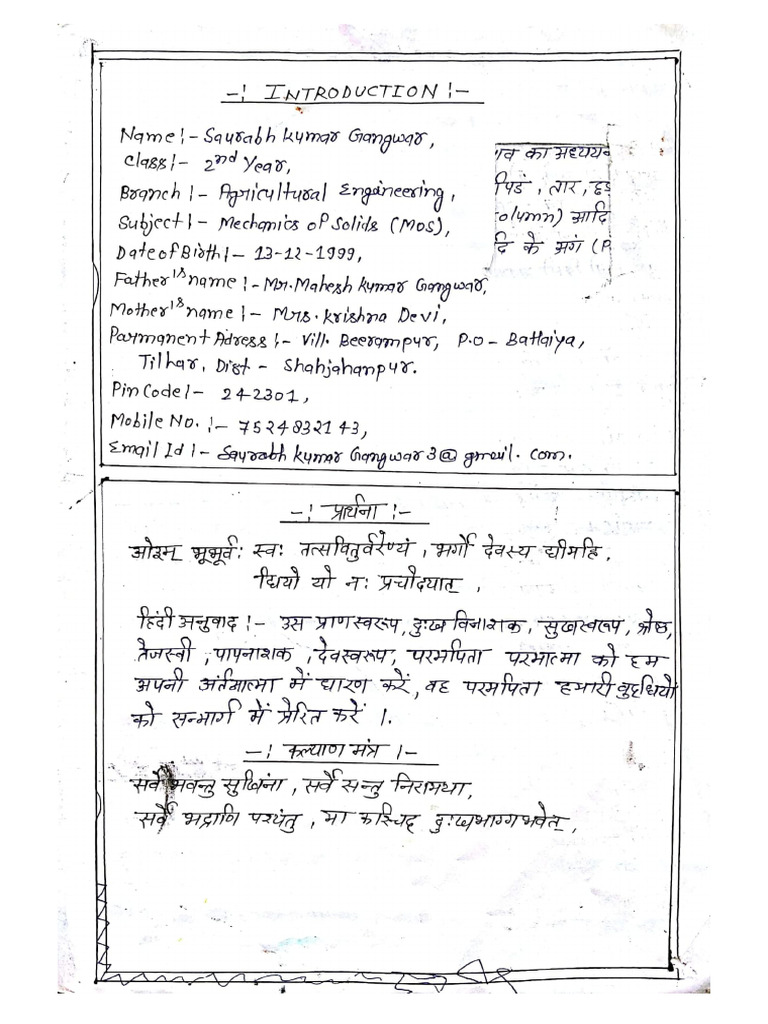 -: INTRODUCTION :-
Name:- Saurabh Kumar Gangwar,
Class:- 2nd Year,
Branch:- Agricultural Engineering,
Subject:- Mechanics of Solids (MOS),
Date of Birth:- 13-12-1999,
Father's name:- Mr. Mahesh Kumar Gangwar,
Mother's name:- Mrs. Krishna Devi,
Parmanent Adress:- Vill. Beerampur, P.O - Batlaiya,
Tilhar, Dist - Shahjahanpur.
Pin Code:- 242301,
Mobile No.:- 7524832143,
Email Id:- Saurabh Kumar Gangwar3@gmail.com.
का अध्ययन
पिडं, तार, छड़
column) आदि
के अंग
-: प्रार्थना :-
ओ३म् भूर्भूवः स्वः तत्सवितुर्वरेण्यं, भर्गो देवस्य धीमहि,
धियो यो नः प्रचोदयात्,
हिंदी अनुवाद:- उस प्राणस्वरूप, दुःख विनाशक, सुखस्वरूप, श्रेष्ठ,
तेजस्वी, पापनाशक, देवस्वरूप, परमपिता परमात्मा को हम
अपनी अंर्तआत्मा में धारण करें, वह परमपिता हमारी बुद्धियों
को सन्मार्ग में प्रेरित करें।
-: कल्याण मंत्र :-
सर्वे भवन्तु सुखिना, सर्वे सन्तु निरामया,
सर्वे भद्राणि पश्यंतु, मा कस्चिद् दुःखभाग्गभवेत्,